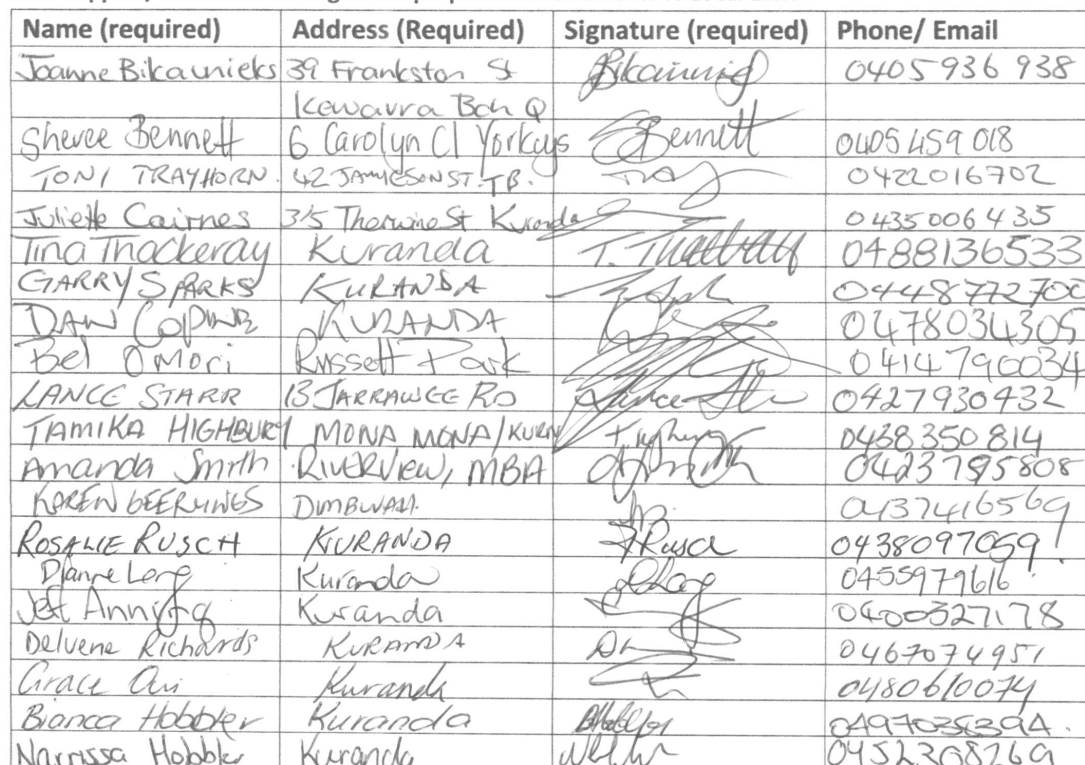 Name (required) Address (Required) Signature (required) Phone/ Email
Joanne Bikaunieks 39 Frankston St Bikaunieks 0405 936 938
Kewarra Bch Q
Sheree Bennett 6 Carolyn Cl Yorkeys SBennett 0405 459 018
TONI TRAYHORN. 42 JAMIESON ST. TB. 0422016702
Juliette Cairnes 3/5 Kuranda 0435006435
Tina Thackeray Kuranda T. Thackeray 0488136533
GARRY SPARKS KURANDA 0448772700
KURANDA 0478034305
Bel Omori Russett Park 0414790034
LANCE STARR 13 JARRAWEE RD 0427930432
TAMIKA HIGHBURY MONA MONA/KURN 0438350814
Amanda Smith RIVERVIEW, MBA 0423795808
KAREN GEERLINGS 0437416569
ROSALIE RUSCH KURANDA RRusch 0438097059
Kuranda 0455979616
Jeff Kuranda 0400327178
Delvene Richards KURANDA 0467074951
Grace Kuranda 0480610074
Bianca Hobbler Kuranda BHobbler
Narrissa Hobbler Kuranda 0452308269